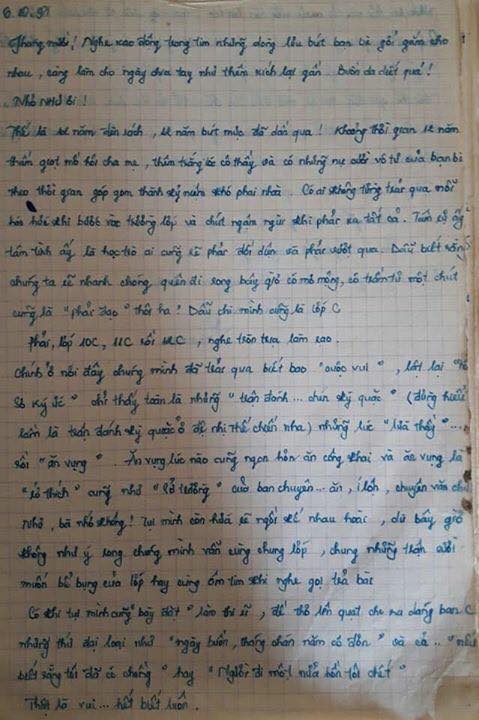 Tháng mười! Nghe xao động trong tim những dòng lưu bút bạn bè gởi gắm cho
nhau, càng làm cho ngày chia tay như thêm xích lại gần. Buồn da diết quá!
Nhỏ Như Bi!
Thế là 12 năm đèn sách, 12 năm bút mực đã dần qua! Khoảng thời gian 12 năm
thấm giọt mồ hôi cha mẹ, thêm trắng tóc cô thầy và có những nụ cười vô tư của bạn bè
theo thời gian góp gom thành kỷ niệm khó phai nhòa. Có ai không từng trải qua mỗi
khi bước vào trường lớp và chút ngậm ngùi khi phải xa tất cả. Tâm
tâm tình ấy là học trò ai cũng sẽ phải đối diện và phải vượt qua. Dẫu biết rằng
chúng ta sẽ nhanh chóng quên đi song bây giờ có mơ mộng, có trầm tư một chút
cũng là "phải đạo" thôi ha! Dẫu chi mình cũng là lớp C
Phải, lớp 10C, 11C rồi 12C, nghe tròn trịa làm sao.
Chính ở nơi đây chúng mình đã trải qua biết bao "cuộc vui", lật lại
ký ức" chỉ thấy toàn là những "trận đánh... chín kỳ quặc" (đừng hiểu
lầm là trận đánh kỳ quặc ở đệ nhị thế chiến nha) những lúc "lừa thầy"...
rồi "ăn vụng"... Ăn vụng lúc nào cũng ngon hơn ăn công khai và ăn vụng là
"sở thích" cũng như "sở trường" của ban chuyên... ăn, ị lộn, chuyên văn chứ
Như, bà nhớ không! Tụi mình còn hứa sẽ ngồi kế nhau hoài, dù bây giờ
không như ý song chúng mình vẫn cùng chung lớp, chung những trận cười
muốn bể bụng của lớp hay cùng ôm tim khi nghe gọi trả bài
Có khi tụi mình cũng "bày đặt" làm thi sĩ, để thổ lên quạt cho ra dáng ban C
những thứ đại loại như "ngày buồn, tháng chán năm cô đơn" và cả.. "nếu
biết rằng tôi đã có chồng" hay "Người đi một nửa hồn tôi chết"
Thật là vui... hết biết luôn.